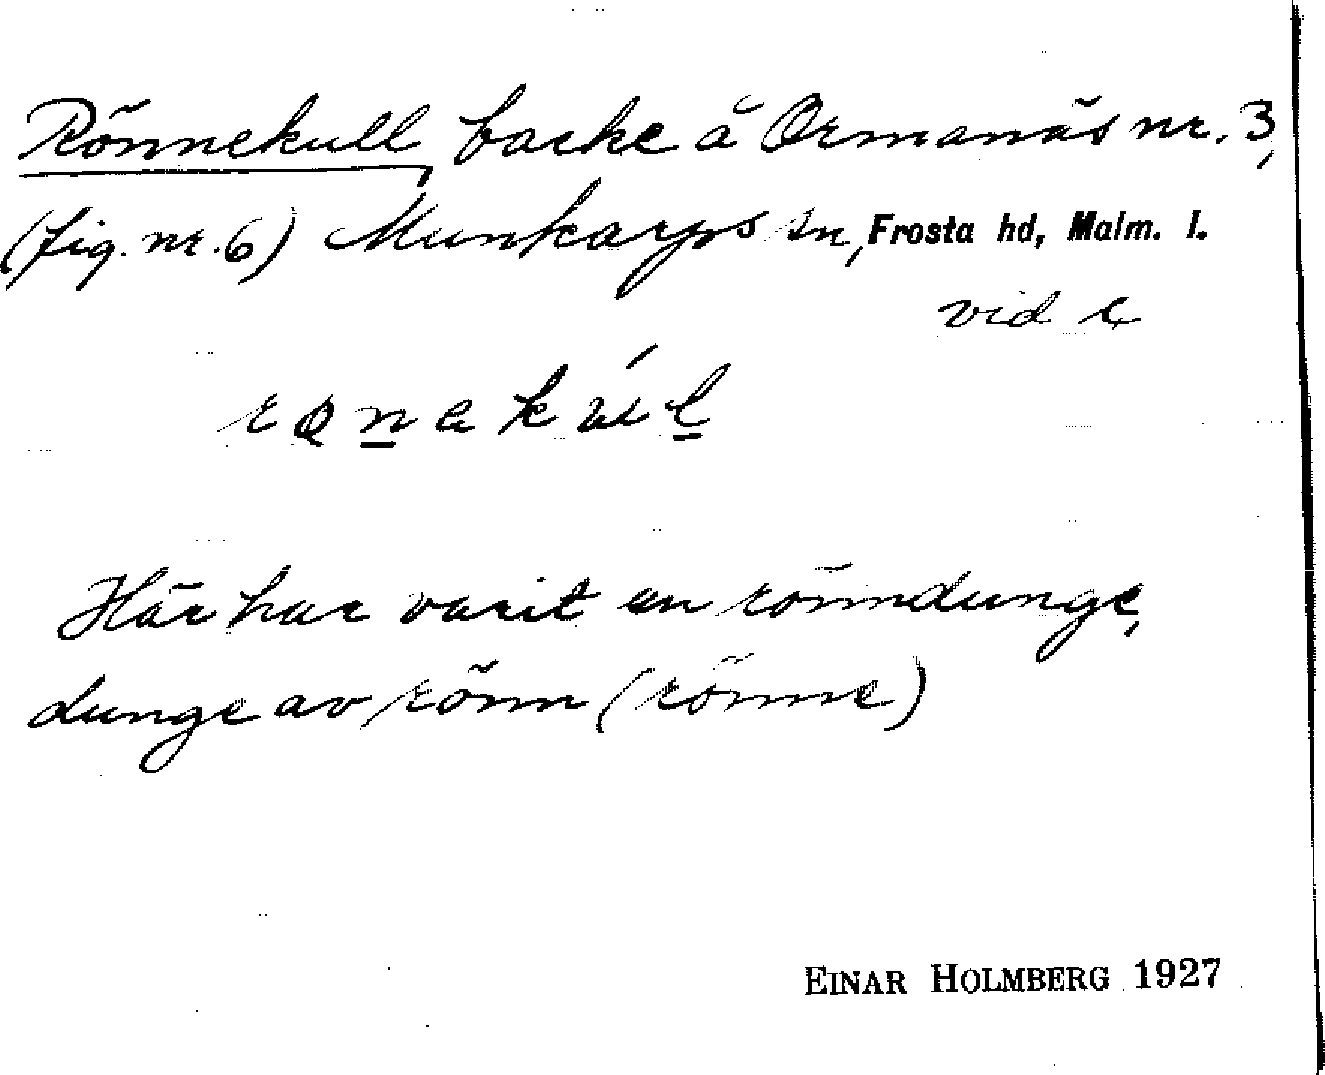 Rönnekull, backe å Ormanäs nr. 3,
(fig. nr. 6) Munkarps sn, Frosta hd, Malm. l.
vid
Här har varit en rönndunge,
dunge av rönn (rönne)
EINAR HOLMBERG 1927